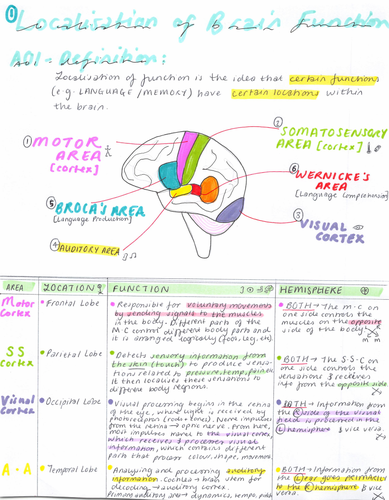 Localisation of Brain Function
AO1 - Definition:
Localisation of function is the idea that certain functions
(e.g. LANGUAGE / MEMORY) have certain locations within
the brain.
① MOTOR
AREA
[cortex]
② SOMATOSENSORY
AREA [cortex]
⑥ WERNICKE'S
AREA
[Language Comprehension]
⑤ BROCA'S AREA
[Language Production]
④ AUDITORY AREA
③ VISUAL
CORTEX
AREA
LOCATION
FUNCTION
HEMISPHERE
Motor
Cortex
• Frontal Lobe
• Responsible for voluntary movements
by sending signals to the muscles
in the body. Different parts of the
M.C control different body parts and
it is arranged logically (foot, leg, etc).
• BOTH → The M.C on
one side controls the
muscles on the opposite
side of the body.
SS
Cortex
• Parietal Lobe
• Detects sensory information from
the skin (touch) to produce sensa-
tions related to pressure, temp, pain etc
It then localises these sensations to
different body regions.
• BOTH → The S.S.C on
one side controls the
sensations & receives
info from the opposite side.
Visual
Cortex
• Occipital Lobe
• Visual processing begins in the retina
of the eye, where light is received by
photoreceptors (rods + cones). Nerve impulses
from the retina → optic nerve. From here,
most impulses move to the visual cortex,
which receives & processes visual
information, which contains different
parts that process colour, shape, movement.
• BOTH → Information from
the R side of the visual
field is processed in the
L hemisphere & vice versa.
A.A
• Temporal Lobe
• Analysing and processing auditory
information. Cochlea → brain stem for
decoding → auditory cortex.
Primary auditory area → dynamics, tempo,
• BOTH → Information from
the L ear goes primarily
to the R hemisphere & vice
versa.